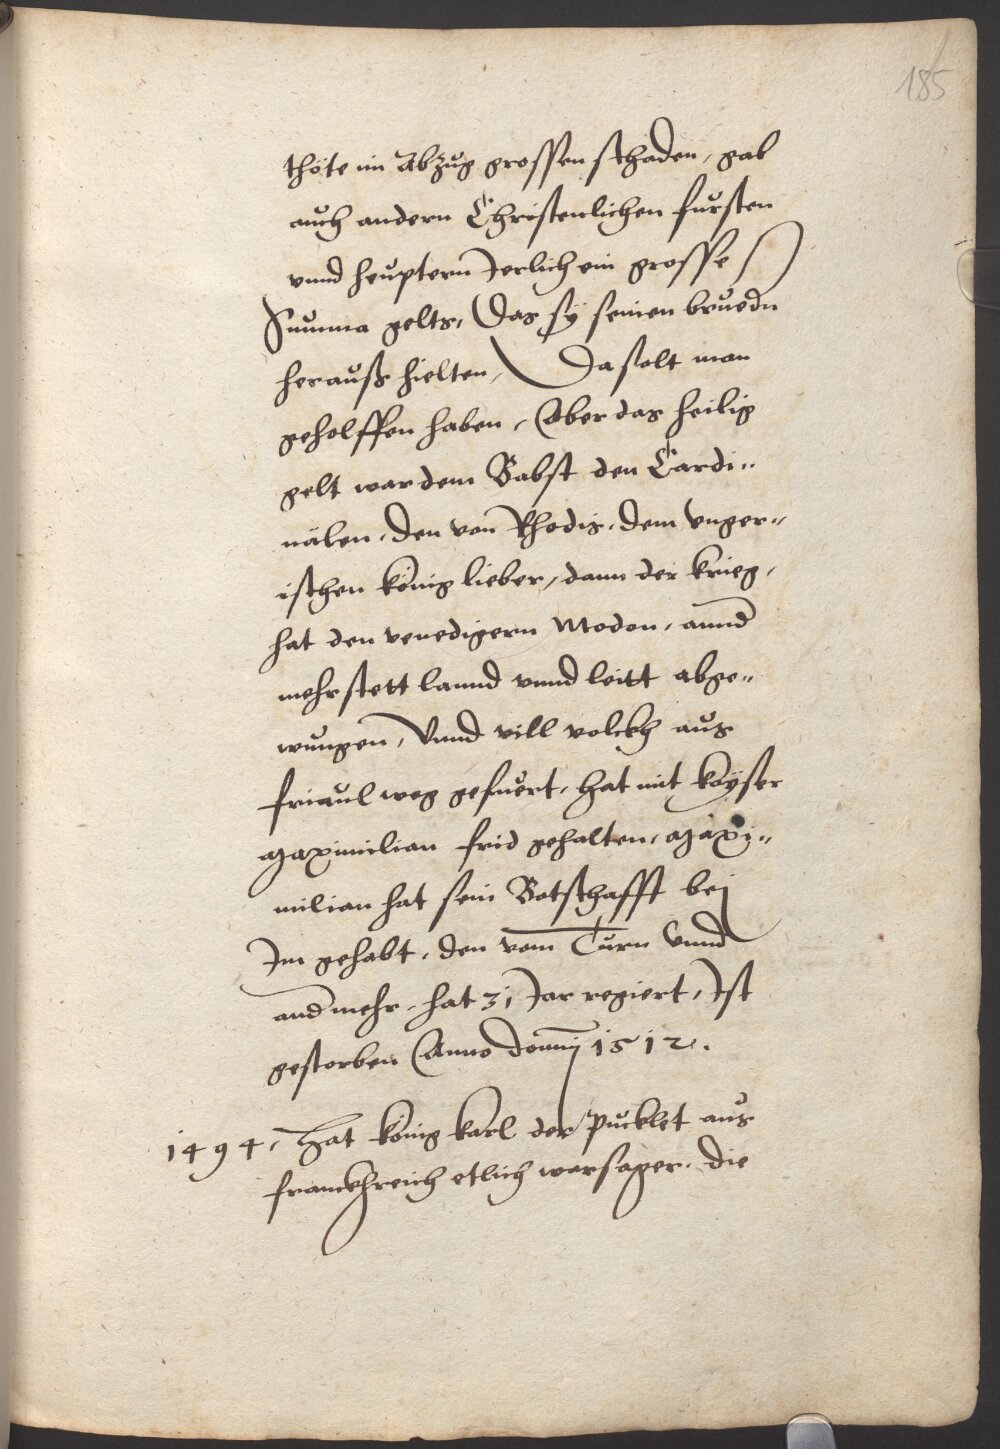 185
thöte im Abzug grossen schaden, gab
auch andern Christenlichen fursten
vnnd heuptern Jerlich ein grosse
Summa gelts, Das sy seinen bruedn
herauß hielten, Da solt man
geholffen haben, Aber das heilig
gelt war dem Babst den Cardi„
nälen, den von Rhodis, dem vnger„
ischen könig lieber, dann der krieg,
hat den venedigern Modon, annd
mehr stett lannd vnnd leitt abge„
wungen, Vnnd vill volckh aus
friaul weg gefuert, hat mit kayser
Maximilian frid gehalten, Maxi„
milian hat sein Botschafft bej
Im gehabt, den vom Turn Vnnd
and mehr, hat 31 Jar regiert, Ist
gestorben Anno domnj 1512.
1494, Hat könig karl der pucklet aus
franckhreich etlich warsager, die